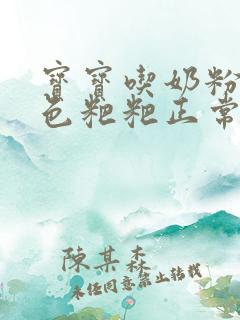 寶寶喫奶粉
色粑粑正常
陳某某
未经同意禁止转载